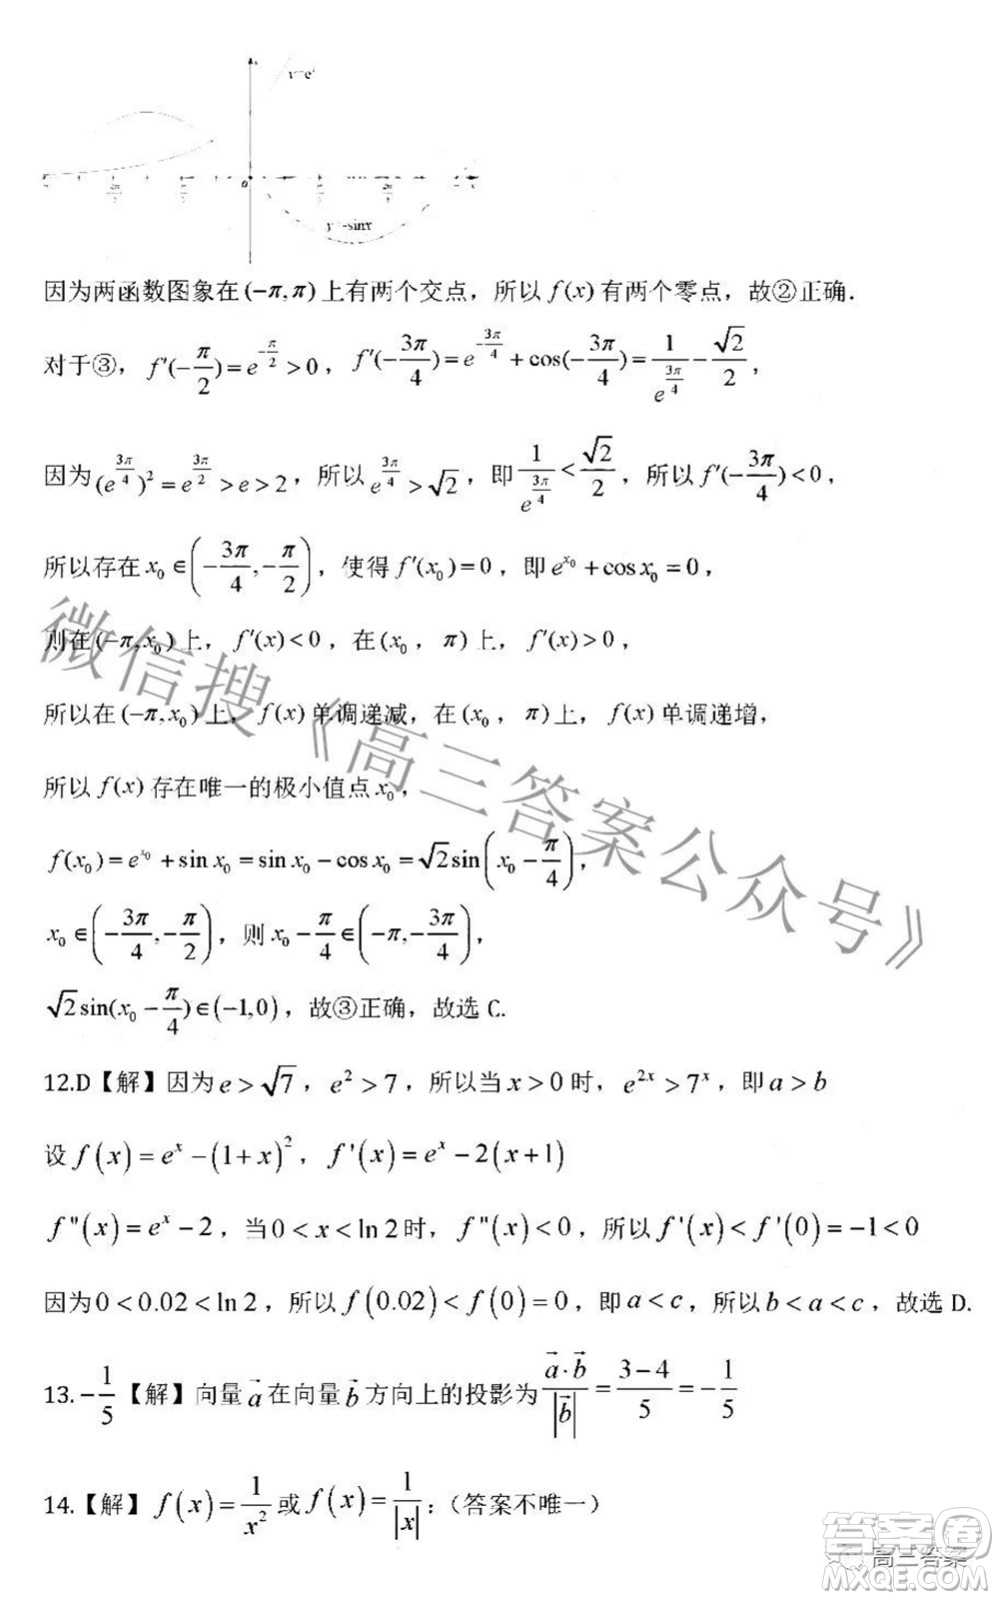 y=eˣ
y=-sinx
因为两函数图象在 (−π,π) 上有两个交点，所以 f(x) 有两个零点，故②正确.
对于③，f′(−π/2)=e^(−π/2)>0，f′(−3π/4)=e^(−3π/4)+cos(−3π/4)=1/e^(3π/4)−√2/2，
因为 (e^(3π/4))²=e^(3π/2)>e>2，所以 e^(3π/4)>√2，即 1/e^(3π/4)<√2/2，所以 f′(−3π/4)<0，
所以存在 x₀∈(−3π/4,−π/2)，使得 f′(x₀)=0，即 e^(x₀)+cosx₀=0，
则在(−π,x₀)上，f′(x)<0，在(x₀，π)上，f′(x)>0，
所以在(−π,x₀)上，f(x)单调递减，在(x₀，π)上，f(x)单调递增，
所以 f(x) 存在唯一的极小值点 x₀，
f(x₀)=e^(x₀)+sinx₀=sinx₀−cosx₀=√2sin(x₀−π/4)，
x₀∈(−3π/4,−π/2)，则 x₀−π/4∈(−π,−3π/4)，
√2sin(x₀−π/4)∈(−1,0)，故③正确，故选 C.
12.D【解】因为 e>√7，e²>7，所以当 x>0 时，e^(2x)>7^x，即 a>b
设 f(x)=e^x−(1+x)²，f'(x)=e^x−2(x+1)
f"(x)=e^x−2，当 0<x<ln2 时，f"(x)<0，所以 f'(x)<f'(0)=−1<0
因为 0<0.02<ln2，所以 f(0.02)<f(0)=0，即 a<c，所以 b<a<c，故选 D.
13.−1/5【解】向量 a⃗ 在向量 b⃗ 方向上的投影为 (a⃗·b⃗)/|b⃗|=(3−4)/5=−1/5
14.【解】f(x)=1/x² 或 f(x)=1/|x|；（答案不唯一）
微信搜《高三答案公众号》
答案卷
高三答案
MXQE.COM